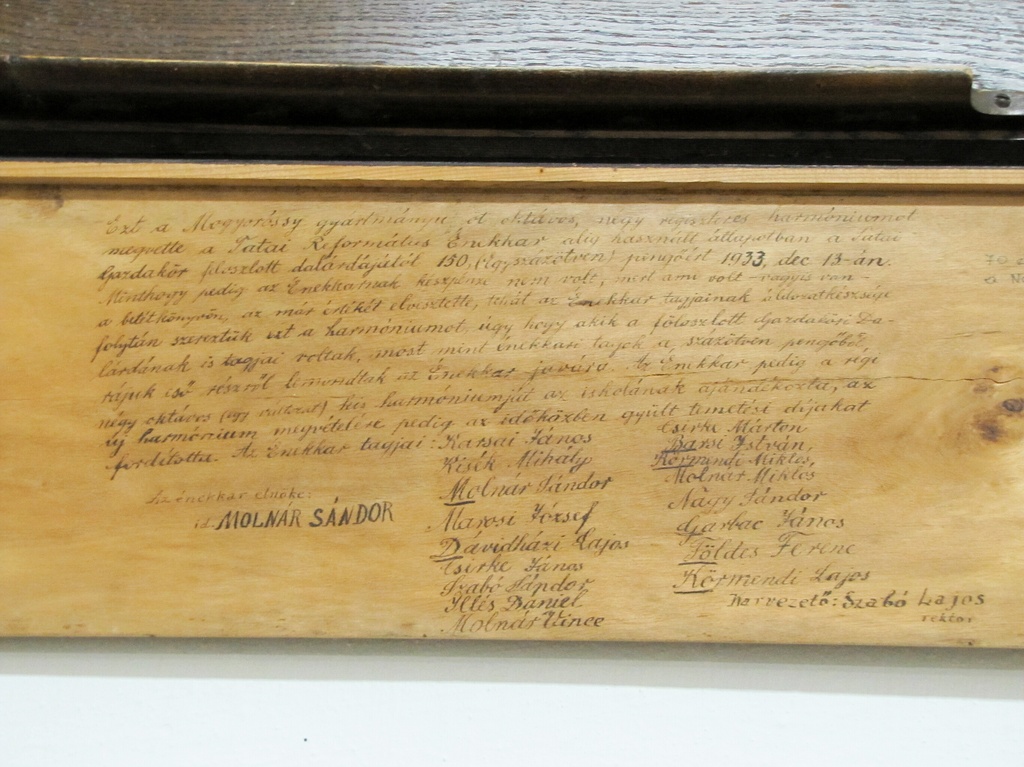 Ezt a Mogyoróssy gyártmányu, öt oktávos, négy regiszteres harmóniumot
megvette a Tatai Református Énekkar alig használt állapotban a Tatai
Gazdakör feloszlott dalárdájától 150, (egyszázötven) pengőért 1933, dec 13-án.
Minthogy pedig az Énekkarnak készpénze nem volt, mert ami volt vagyis van
a betétkönyvön, az már értékét elvesztette, tehát az Énekkar tagjainak áldozatkészsége
folytán szereztük ezt a harmóniumot, úgy hogy akik a föloszlott Gazdaköri Da-
lárdának is tagjai voltak, most mint énekkari tagok a százötven pengőből
rájuk eső részről lemondtak az Énekkar javára. Az Énekkar pedig a régi
négy oktávos (egy változat) kis harmóniumját az iskolának ajándékozta, az
új harmónium megvételére pedig az időközben gyült temetési díjakat
fordította. Az Énekkar tagjai: Karsai János
Kisék Mihály
Molnár Sándor
Marosi József
Dávidházi Lajos
Csirke János
Szabó Sándor
Illés Dániel
Molnár Vince
Csirke Márton
Barsi István,
Körmendi Miklós,
Molnár Miklós
Nagy Sándor
Garbac János
Földes Ferenc
Körmendi Lajos
Karvezető: Szabó Lajos
rektor
Az énekkar elnöke:
id. MOLNÁR SÁNDOR